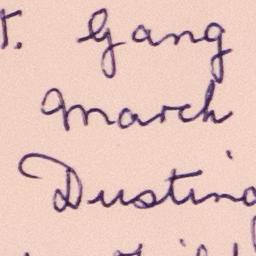 t. Gang
March
Dusting